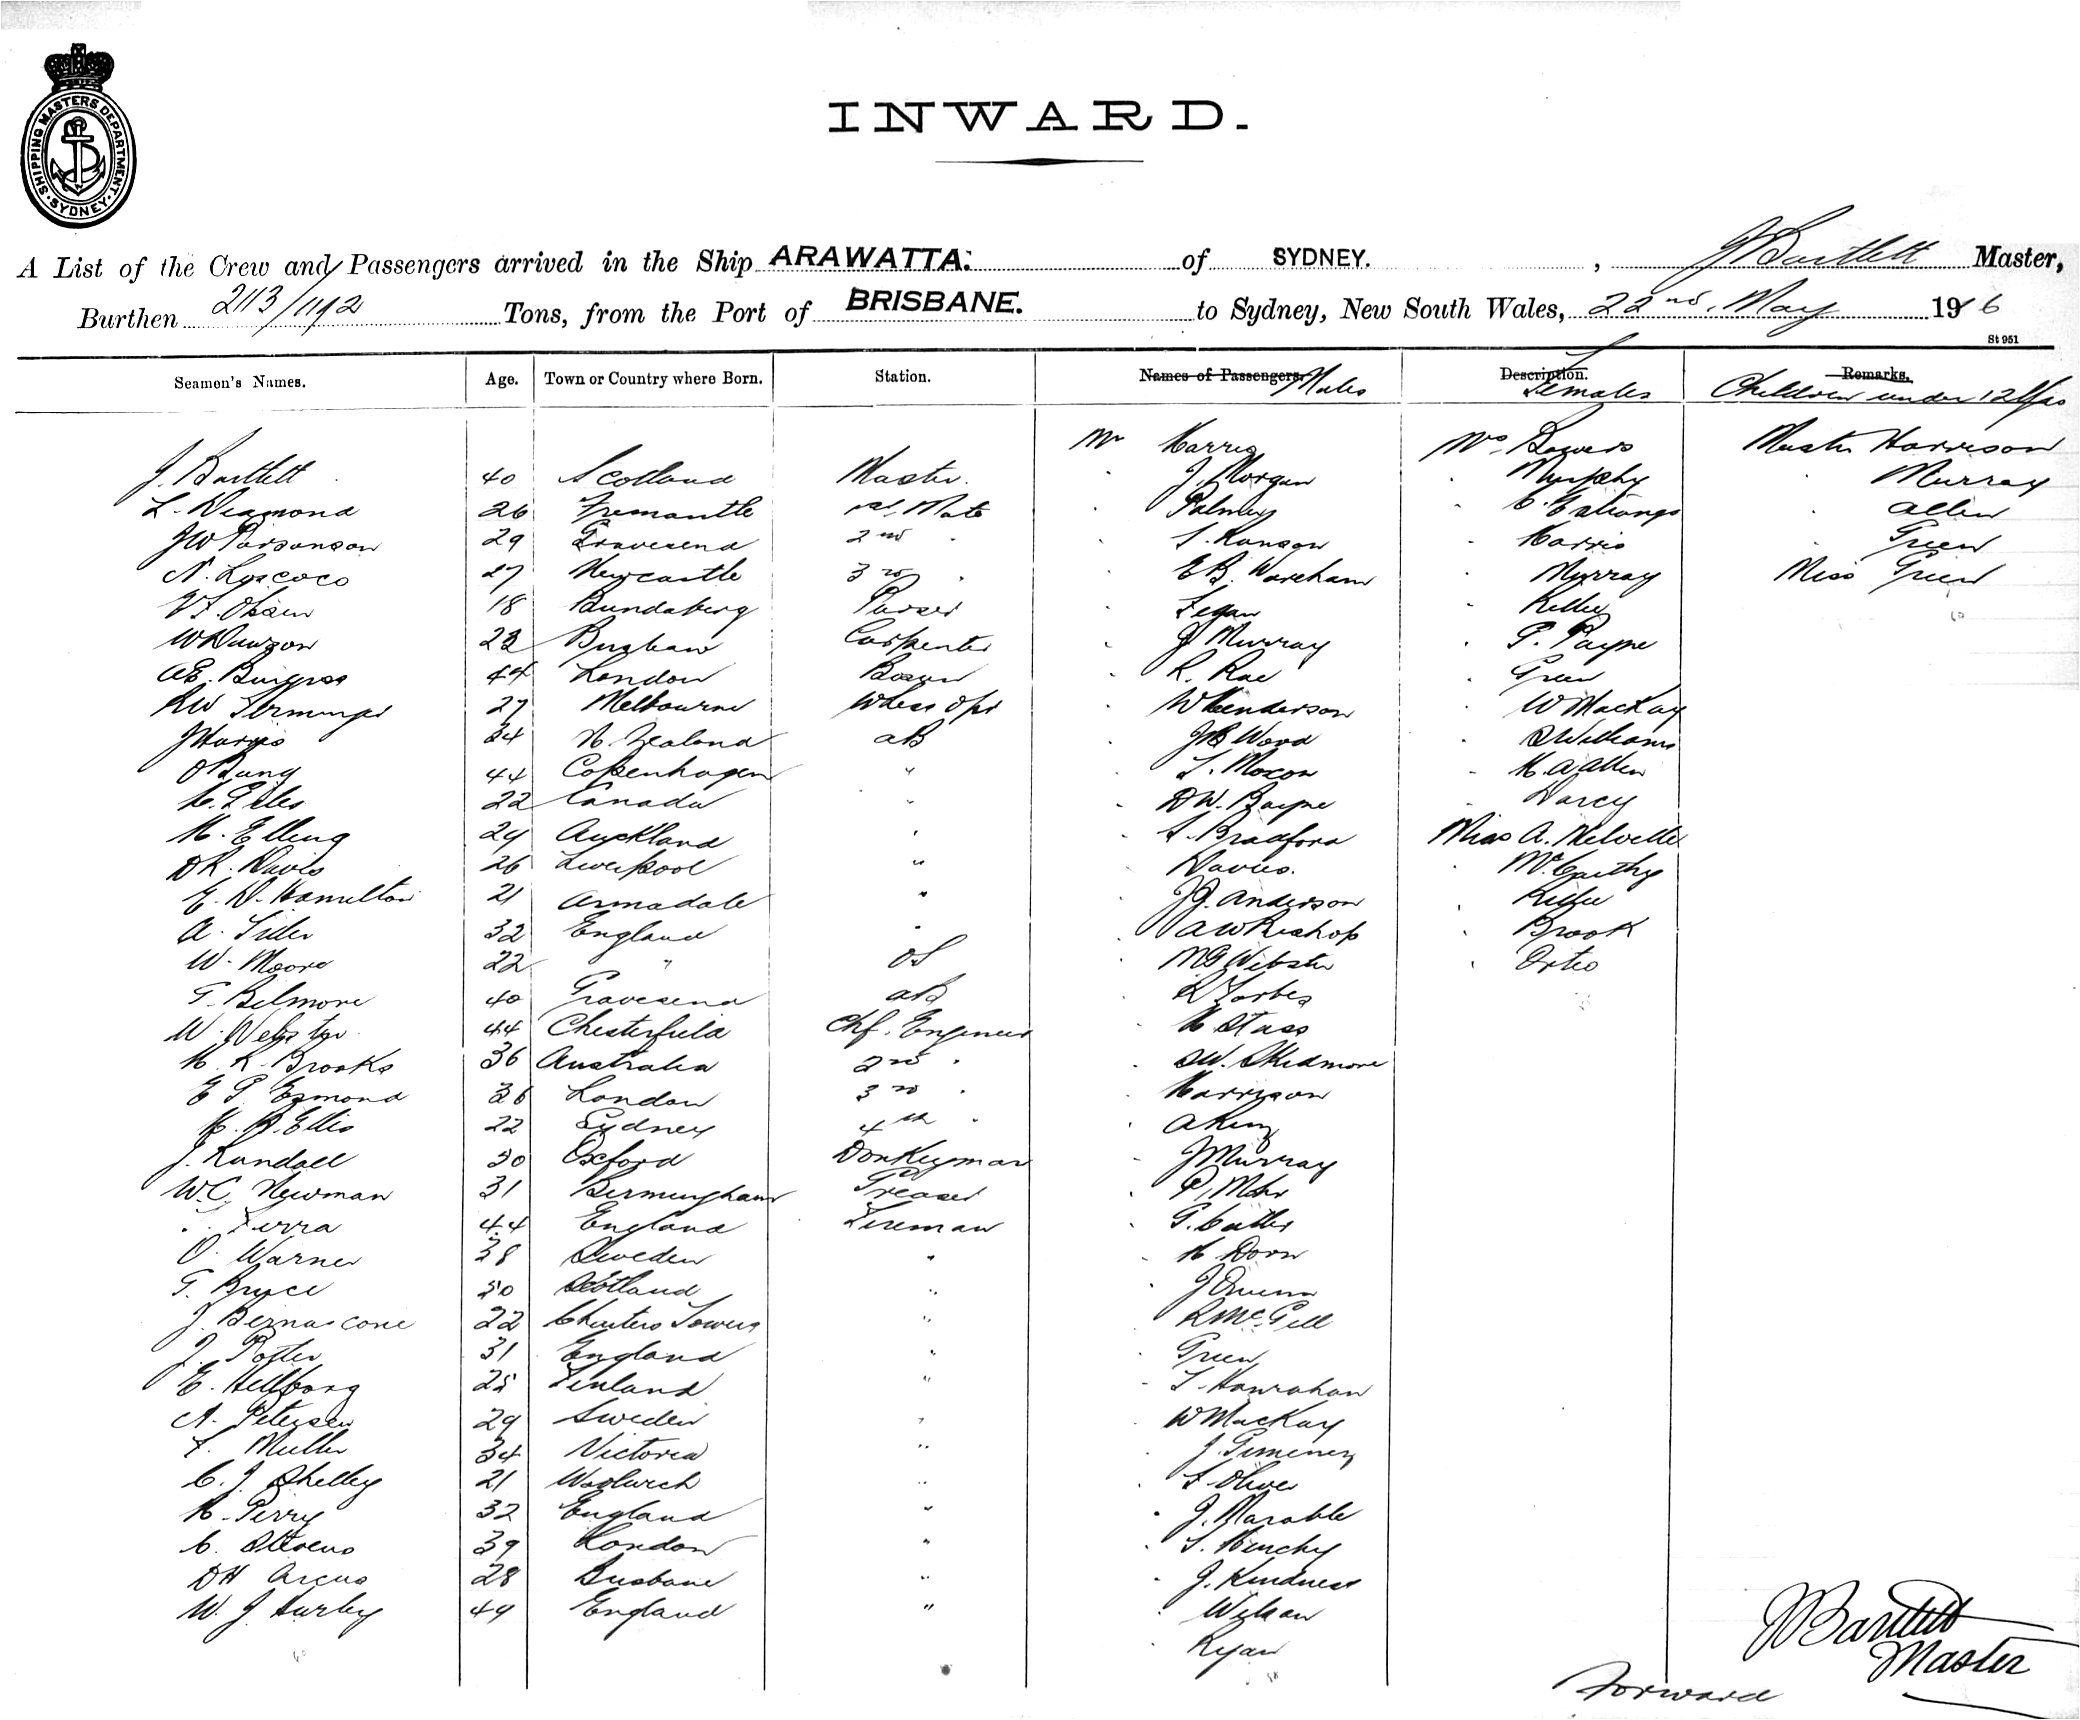 SHIPPING MASTERS DEPARTMENT. SYDNEY.
INWARD.
A List of the Crew and Passengers arrived in the Ship ARAWATTA. of SYDNEY. , J Bartlett Master,
Burthen 2113/1192 Tons, from the Port of BRISBANE. to Sydney, New South Wales, 22nd May 1916
St 951
Seamen's Names. Age. Town or Country where Born. Station. Names of Passengers. Males Description. Females Remarks. Children under 12 Yrs
Mr Harris Mrs Bowers Master Harrison
J. Bartlett 40 Scotland Master. " J. Morgan " Murphy " Murray
L. Desmond 26 Fremantle 1st Mate " Palmer " C. " Allen
JW Parsonson 29 Gravesend 2nd " " S. Hanson " Harris " Green
N. Loscoco 27 Newcastle 3rd " " E.B. Wareham " Murray Miss Green
Olsen 18 Bundaberg Purser " Fegan " Kelley
W Dawson 23 Carpenter " J Murray " P. Payne
AE. Burgess 44 London Bosun " R. Rae " Green
RW 27 Melbourne Wless Opr " W Henderson " W MacKay
J Harris 34 N. Zealand AB " JB Wood " S Williams
O Bang 44 Copenhagen " " S. Moxon " M. A. Allen
22 Canada " " D W. Payne " Darcy
H. Elling 29 Auckland " " S. Bradford Miss A. Melville
D R. Davis 26 Liverpool " " Davies. " McCarthy
E. D. Hamilton 21 Armadale " " J J. Anderson " Kellie
A. 32 England " " A W Bishop " Brook
W. Moore 22 " OS " Webster "
G. Belmore 40 Gravesend AB " R Forbes
W. Webster 44 Chesterfield Chf. Engineer " H Stass
H. R. Brooks 36 Australia 2nd " " SW. Skidmore
E P. Esmond 26 London 3rd " " Harrison
H. B. Ellis 22 Sydney 4th " " A King
J. Randall 30 Oxford Donkeyman " J Murray
W.C. Newman 31 Birmingham Greaser " P. Mohr
44 England Fireman " G. Cutler
O. Warner 38 Sweden " " H Dorn
G. Bryce 50 Scotland " " J Quinn
J. Bernascone 22 Charters Towers " " R McGill
J. Potter 31 England " " Green
E. Hellborg 25 Finland " " T. Hanrahan
A. Petersen 29 Sweden " " W MacKay
F. Muller 34 Victoria " " J. Gimenez
C. J. Shelley 21 Woolwich " " F. Oliver
H. Perry 32 England " " J. Marable
C. Stevens 39 London " "
D H Argus 28 Brisbane " " J. Kindness
W. J. Hurley 49 England " " Wilson
" Ryan
J Bartlett
Master
Forward